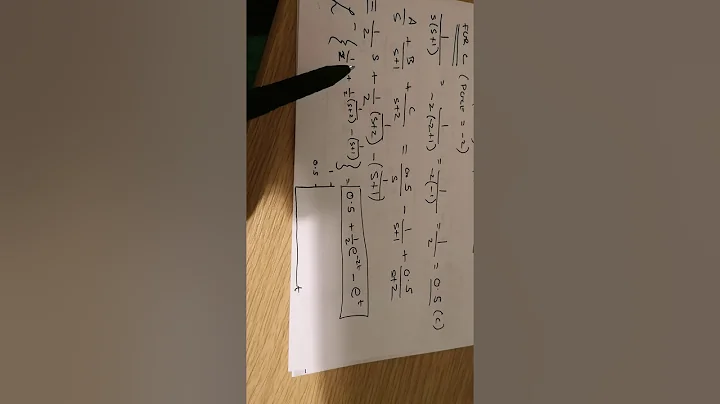 FOR C (POLE = -2)
1/s(s+1) = 1/-2(-2+1) = 1/-2(-1) = 1/2 = 0.5 (C)
A/S + B/S+1 + C/S+2 = 0.5/S - 1/S+1 + 0.5/S+2
= 1/2 S + 1/2 1/(S+2) - 1/(S+1)
{ 1/2 + 1/2 1/(s+2) - 1/(s+1) } = 0.5 + 1/2 e^-2t - e^t
0.5
t